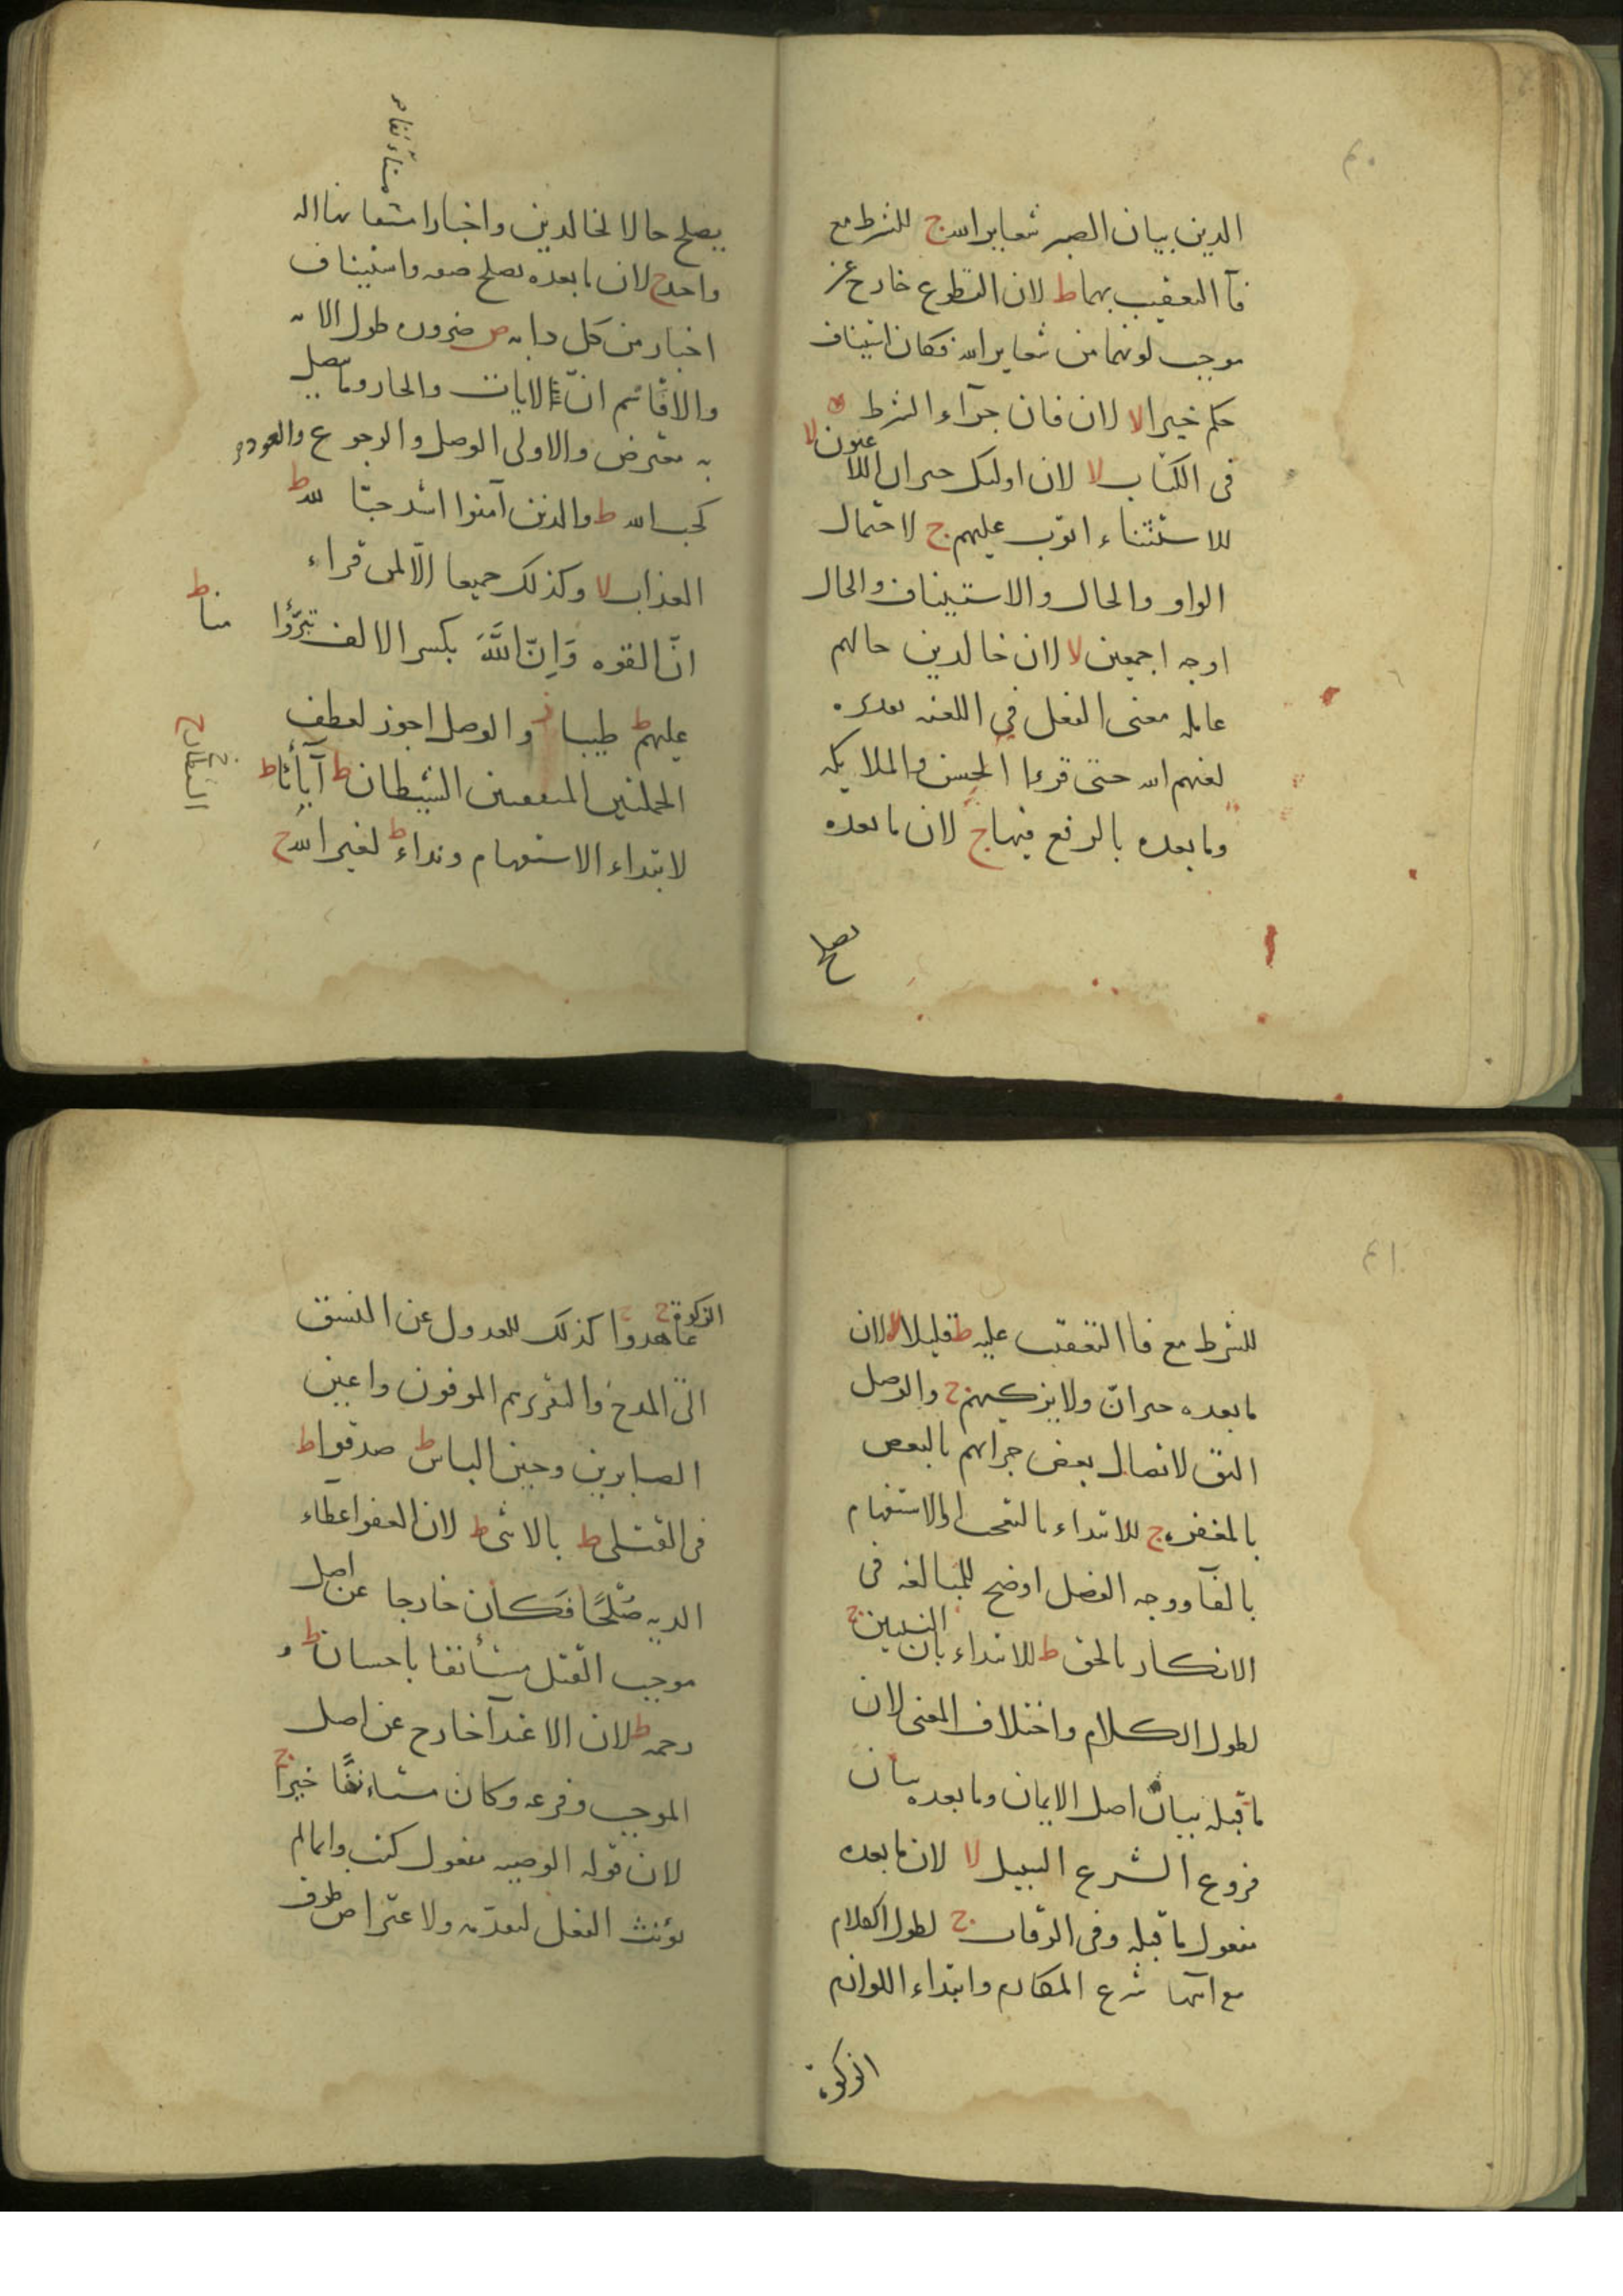 الدين بيان الصبر شعاير الله ج للشرط مع
فآ التعقيب بهما ط لان التطوع خارج عن
موجب لونهما من شعاير الله فكان استيناف
حكم خيرا لا لان فان جزآء الشرط
فى الكتاب لا لان اولئك خبر ان اللاعنون لا
للاستثناء اتوب عليهم ج لاحتمال
الواو والحال والاستيناف والحال
اوجه اجمعين لا لان خالدين حالهم
عامله معنى الفعل في اللعنه
لعنهم الله حتى قرءا الحسن والملايكه
وما بعده بالرفع فيها ج لان ما بعده
يصلح
يصلح حالا لخالدين واخبارا مستانفا اله
واحد ج لان ما بعده يصلح صفه واستيناف
اخبار من كل دابه ص ضروره طول الايه
والاقاسم ان الايات والجار وما يتصل
به معترض والاولى الوصل والرجوع والعود
كحب الله ط والذين آمنوا اشد حبّا لله ط
العذاب لا وكذلك جميعا الّا لمن قراء
انّ القوه وَاِنّ اللَّهَ بكسر الالف تبرّؤا منا ط
عليهم ط طيبا ز والوصل اجوز لعطف
الجملتين المتفقتين الشيطان ط آبآءنا ط
لابتداء الاستفهام ونداء ط لغير الله ج
للشرط مع فا التعقيب عليه ط قليلا لا لان
ما بعده خبر انّ ولا يزكيهم ج والوصل
اليق لاتصال بعض جزائهم بالبعض
بالمغفره ج للابتداء بالتعجب او الاستفهام
بالفآ ووجه الفصل اوضح للمبالغه فى
الانكار بالحق ط للابتداء بان النبيين ج
لطول الكلام واختلاف المعنى لان
ما قبله بيان اصل الايمان وما بعده بيان
فروع الشرع السبيل لا لان ما بعده
مفعول ما قبله وفى الرقاب ج لطول الكلام
مع انتها شرع المكارم وابتداء اللوازم
الزكوة
الزكوة ج
عاهدوا ج كذلك للعدول عن النسق
الى المدح والتقرير هم الموفون واعين
الصابرين وحين الباس ط صدقوا ط
فى القتلى ط بالانثى ط لان العفو اعطاء
الديه صُلحًا فكان خارجا عن اصل
موجب القتل مستأنفا باحسان ط و
رحمة ط لان الاعتدآ خارج عن اصل
الموجب وفرعه وكان مستانفًا خيرا ج
لان قوله الوصيه مفعول كتب وانما لم
يؤنث الفعل لتقدّمه ولاعتراض ظرف